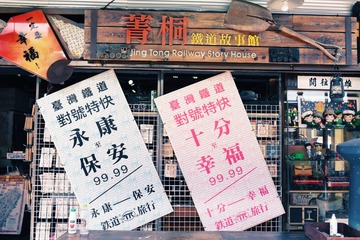 菁桐
鐵道故事館
Jing Tong Railway Story House
幸福
開往
臺灣鐵道
對號特快
永康
至
保安
99.99
永康—保安
鉄道之旅行
臺灣鐵道
對號特快
十分
至
幸福
99.99
十分—幸福
鉄道之旅行